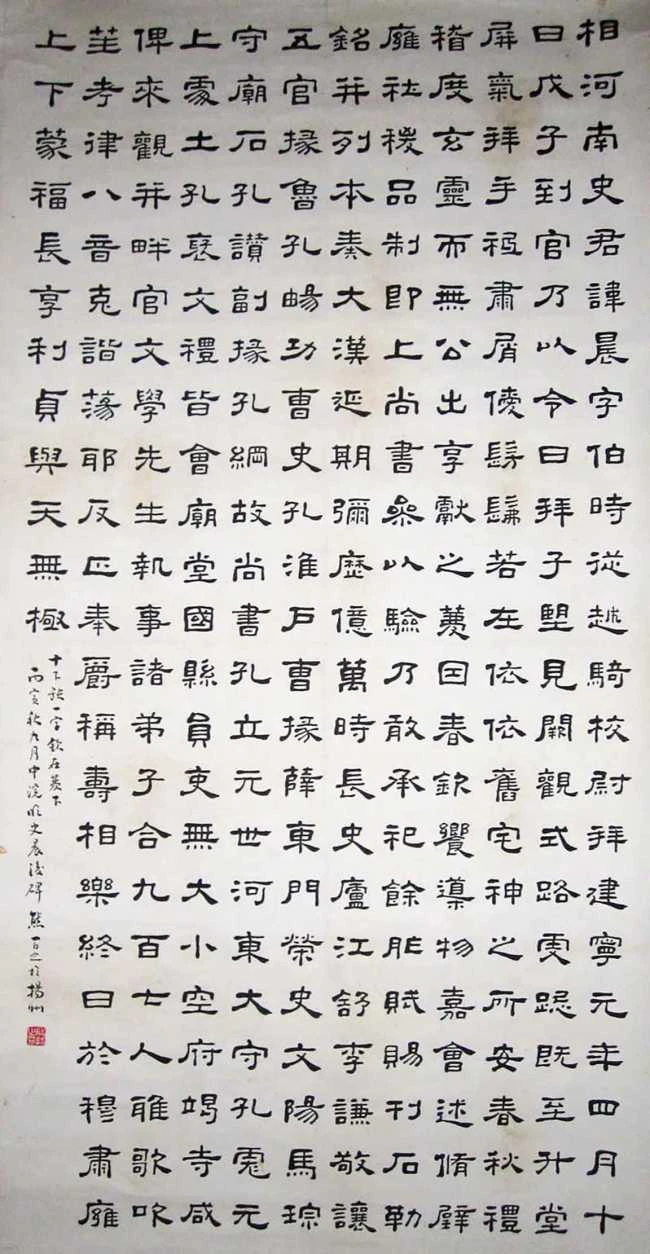 相河南史君諱晨字伯時從越騎校尉拜建寧元年四月十
日戊子到官乃以令日拜子望見闕觀式路虔跽既至升堂
屏氣拜手祗肅屑僾髣髴若在依依舊宅神之所安春秋禮
稽度玄靈而無公出享獻之薦因春欽饗導物嘉會述脩辟
廱社稷品制即上尚書參以驗乃敢承祀餘胙賦賜刊石勒
銘并列本奏大漢延期彌歷億萬時長史廬江舒李謙敬讓
五官掾魯孔暘功曹史孔淮戶曹掾薛東門榮史文陽馬琮
守廟石孔讚副掾孔綱故尚書孔立元世河東大守孔彪元
上處土孔裦文禮皆會廟堂國縣員吏無大小空府竭寺咸
俾來觀并畔官文學先生執事諸弟子合九百七人雅歌吹
笙考律八音克諧蕩耶反正奉爵稱壽相樂終日於穆肅廱
上下蒙福長享利貞與天無極
十下 一字欽在 下
丙寅秋九月中浣臨史晨後碑 熊百之於揚州